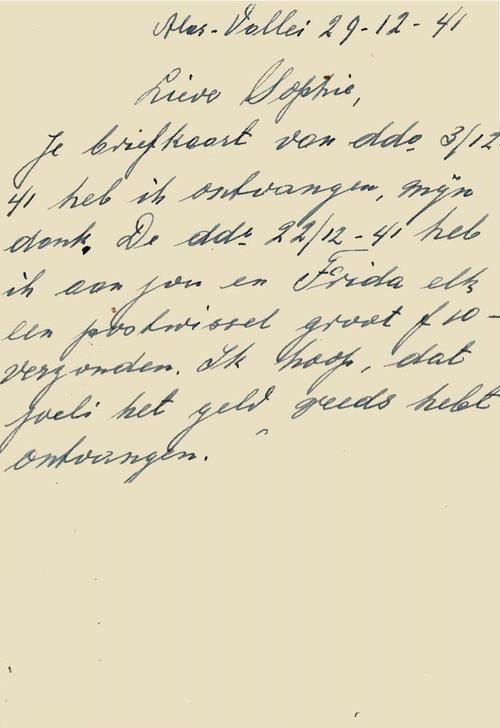 Alas-Vallei 29-12-41
Lieve Sophie,
Je briefkaart van ddo 3/12-
41 heb ik ontvangen, mijn
dank. De ddo 22/12-41 heb
ik aan jou en Frida elk
een postwissel groot f 10-
verzonden. Ik hoop, dat
joeli het geld reeds hebt
ontvangen.